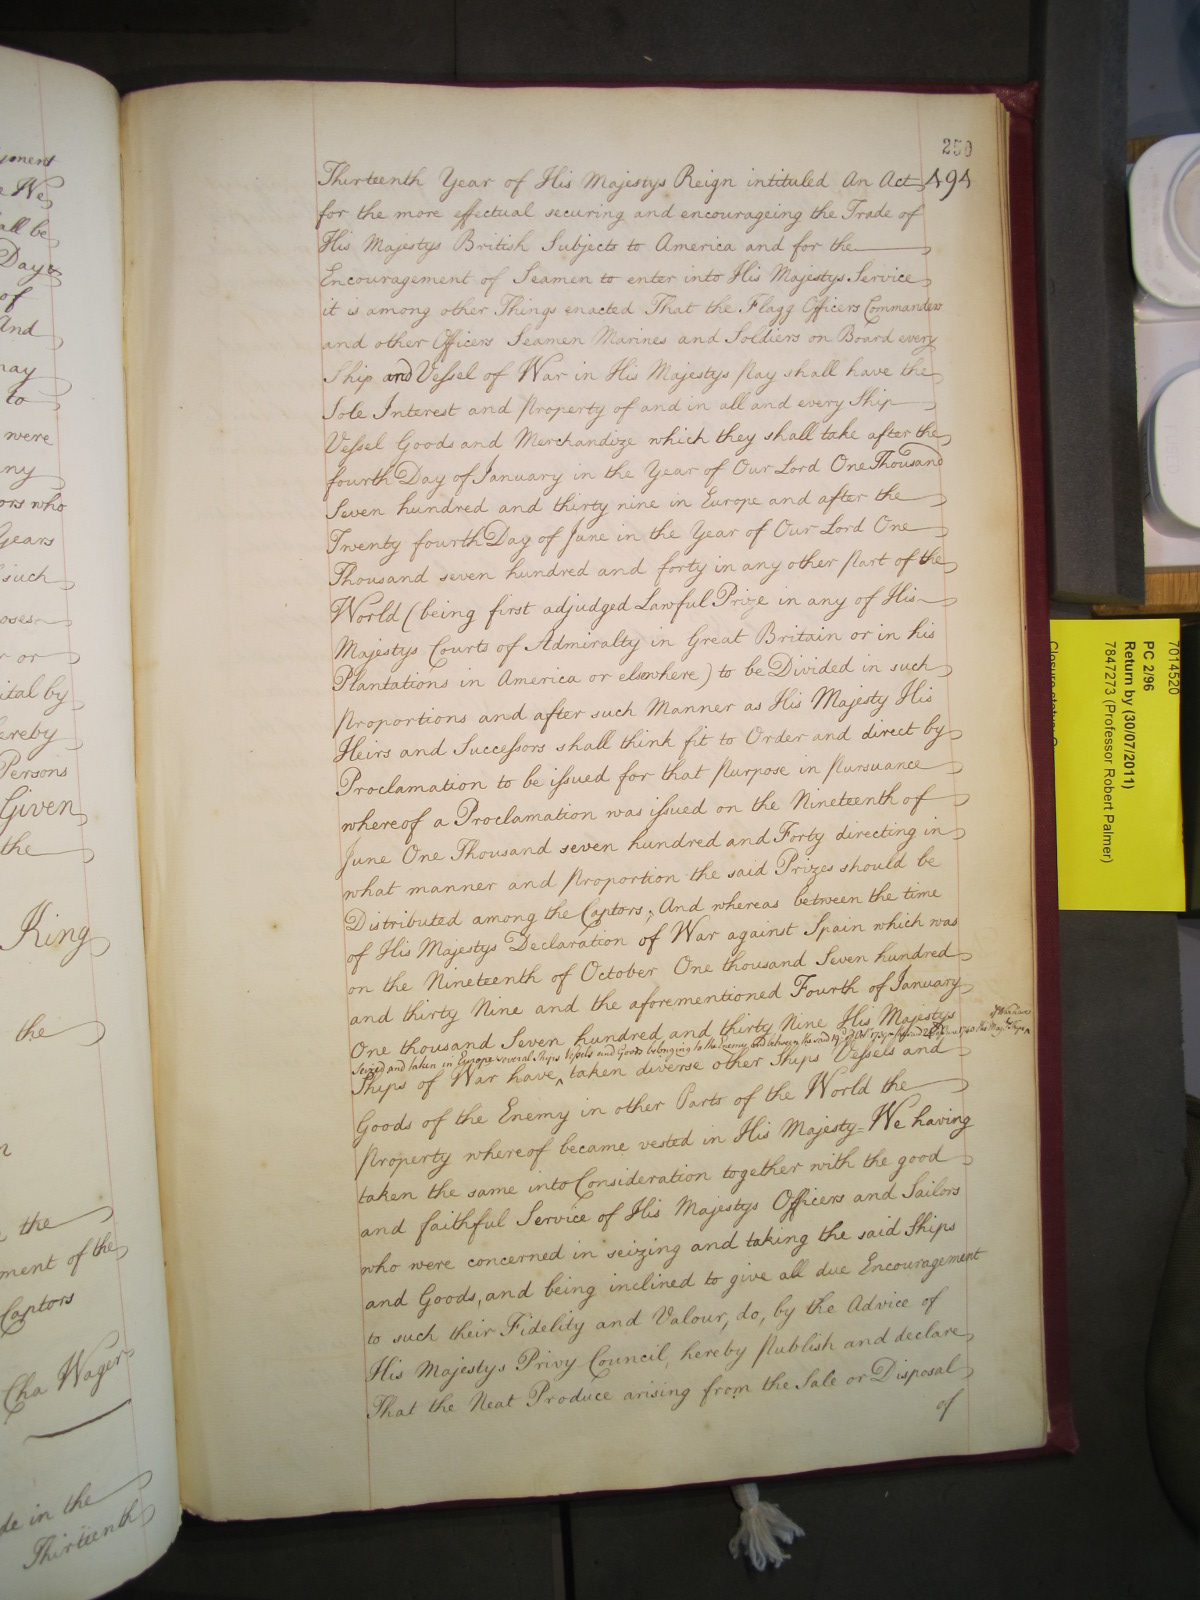 yment
e We
all be
Days
of
And
may
to
were
any
ors who
Years
such
poses
r or
ital by
ereby
Persons
Given
the
King
the
n
the
ment of the
Captors
Cha Wager
de in the
Thirteenth
250
494
Thirteenth Year of His Majestys Reign intituled An Act
for the more effectual securing and encourageing the Trade of
His Majestys British Subjects to America and for the
Encouragement of Seamen to enter into His Majestys Service
it is among other Things enacted That the Flagg Officers Commanders
and other Officers Seamen Marines and Soldiers on Board every
Ship and Vessel of War in His Majestys Pay shall have the
Sole Interest and Property of and in all and every Ship
Vessel Goods and Merchandize which they shall take after the
fourth Day of January in the Year of Our Lord One Thousand
Seven hundred and thirty nine in Europe and after the
Twenty fourth Day of June in the Year of Our Lord One
Thousand seven hundred and forty in any other Part of the
World (being first adjudged Lawful Prize in any of His
Majestys Courts of Admiralty in Great Britain or in his
Plantations in America or elsewhere) to be Divided in such
Proportions and after such Manner as His Majesty His
Heirs and Successors shall think fit to Order and direct by
Proclamation to be issued for that Purpose in Pursuance
whereof a Proclamation was issued on the Nineteenth of
June One Thousand seven hundred and Forty directing in
what manner and Proportion the said Prizes should be
Distributed among the Captors, And whereas between the time
of His Majestys Declaration of War against Spain which was
on the Nineteenth of October One thousand Seven hundred
and thirty Nine and the aforementioned Fourth of January
One thousand Seven hundred and thirty Nine His Majestys
Seized and taken in Europe several Ships Vessels and Goods belonging to the Enemy and between the said 19th of Oct 1739 1740 His Majtys Ships
of War have
Ships of War have ^ taken diverse other Ships Vessels and
Goods of the Enemy in other Parts of the World the
Property whereof became vested in His Majesty = We having
taken the same into Consideration together with the good
and faithful Service of His Majestys Officers and Sailors
who were concerned in seizing and taking the said Ships
and Goods, and being inclined to give all due Encouragement
to such their Fidelity and Valour, do, by the Advice of
His Majestys Privy Council, hereby Publish and declare
That the Neat Produce arising from the Sale or Disposal
of
7014520
PC 2/96
Return by (30/07/2011)
7847273 (Professor Robert Palmer)